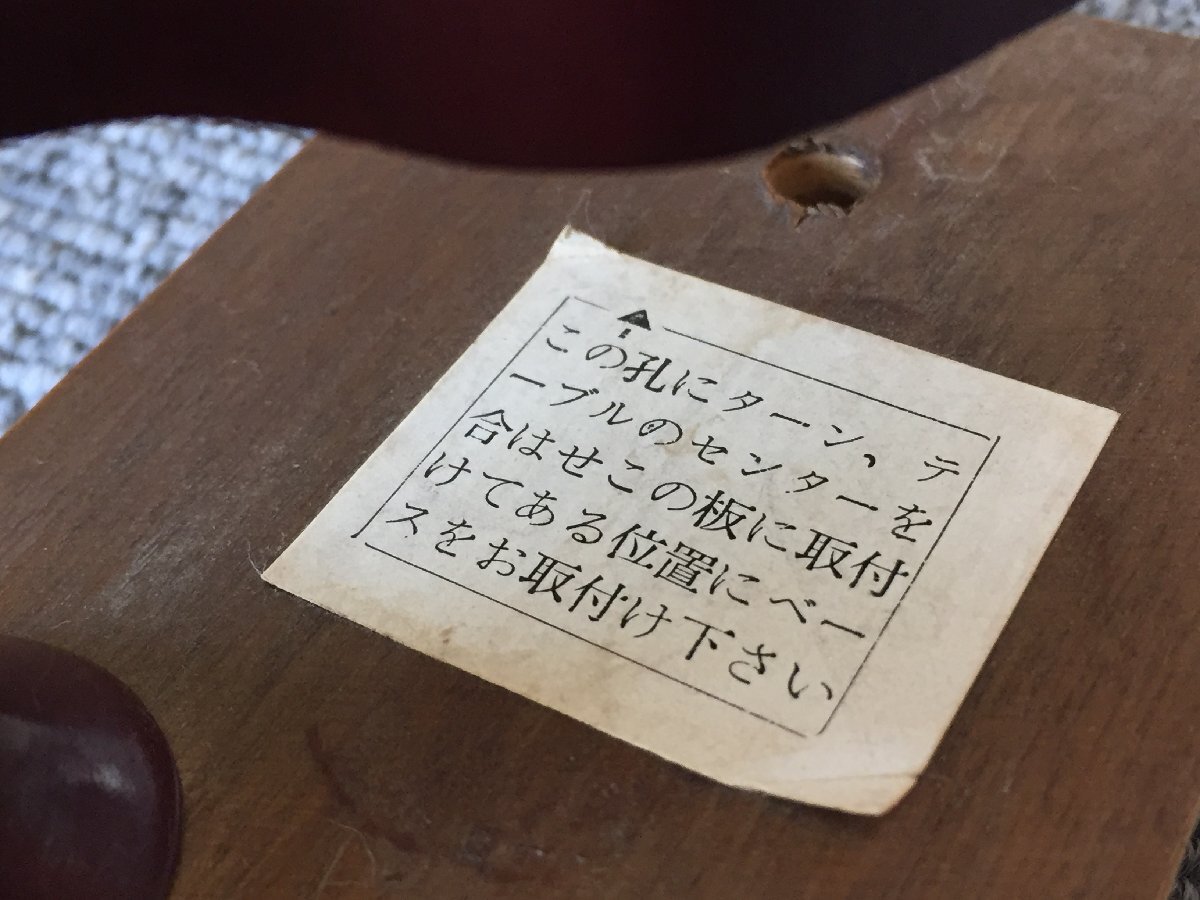 この孔にターン、テ
ーブルのセンターを
合はせこの板に取付
けてある位置にベー
スをお取付け下さい